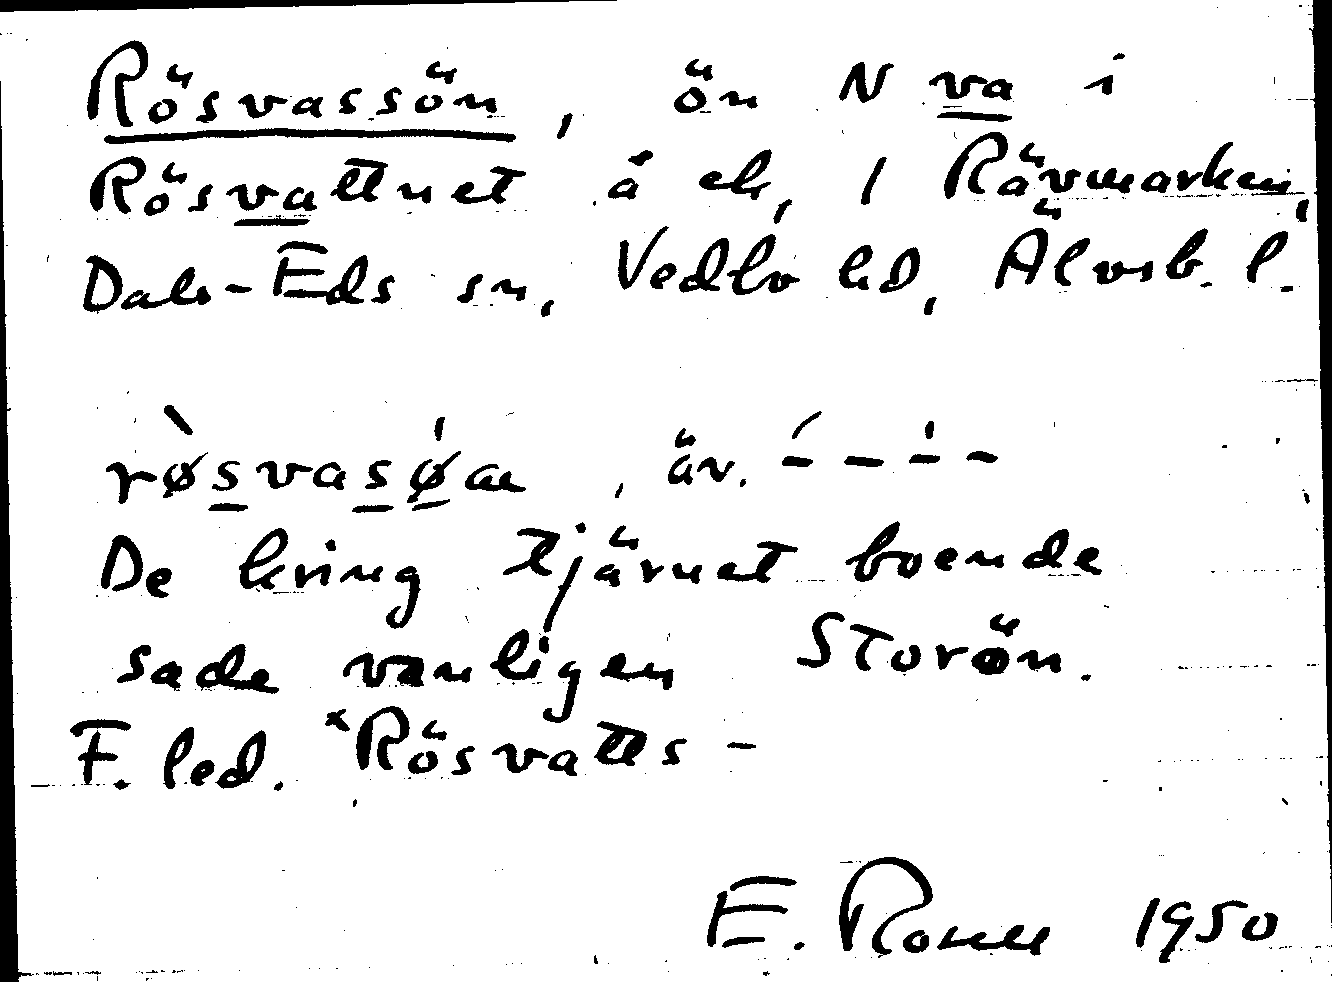 Rösvassön, ön N va i
Rösvattnet å ek, 1 Rävmarken,
Dals-Eds sn, Vedbo hd, Älvsb. l.
røsvasøæ, äv. – – – –
De kring tjärnet boende
sade vanligen Storön.
F. led. *Rösvatts-
E. 1950